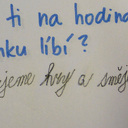 ti na hodina
nku líbí?
jeme hry a směj